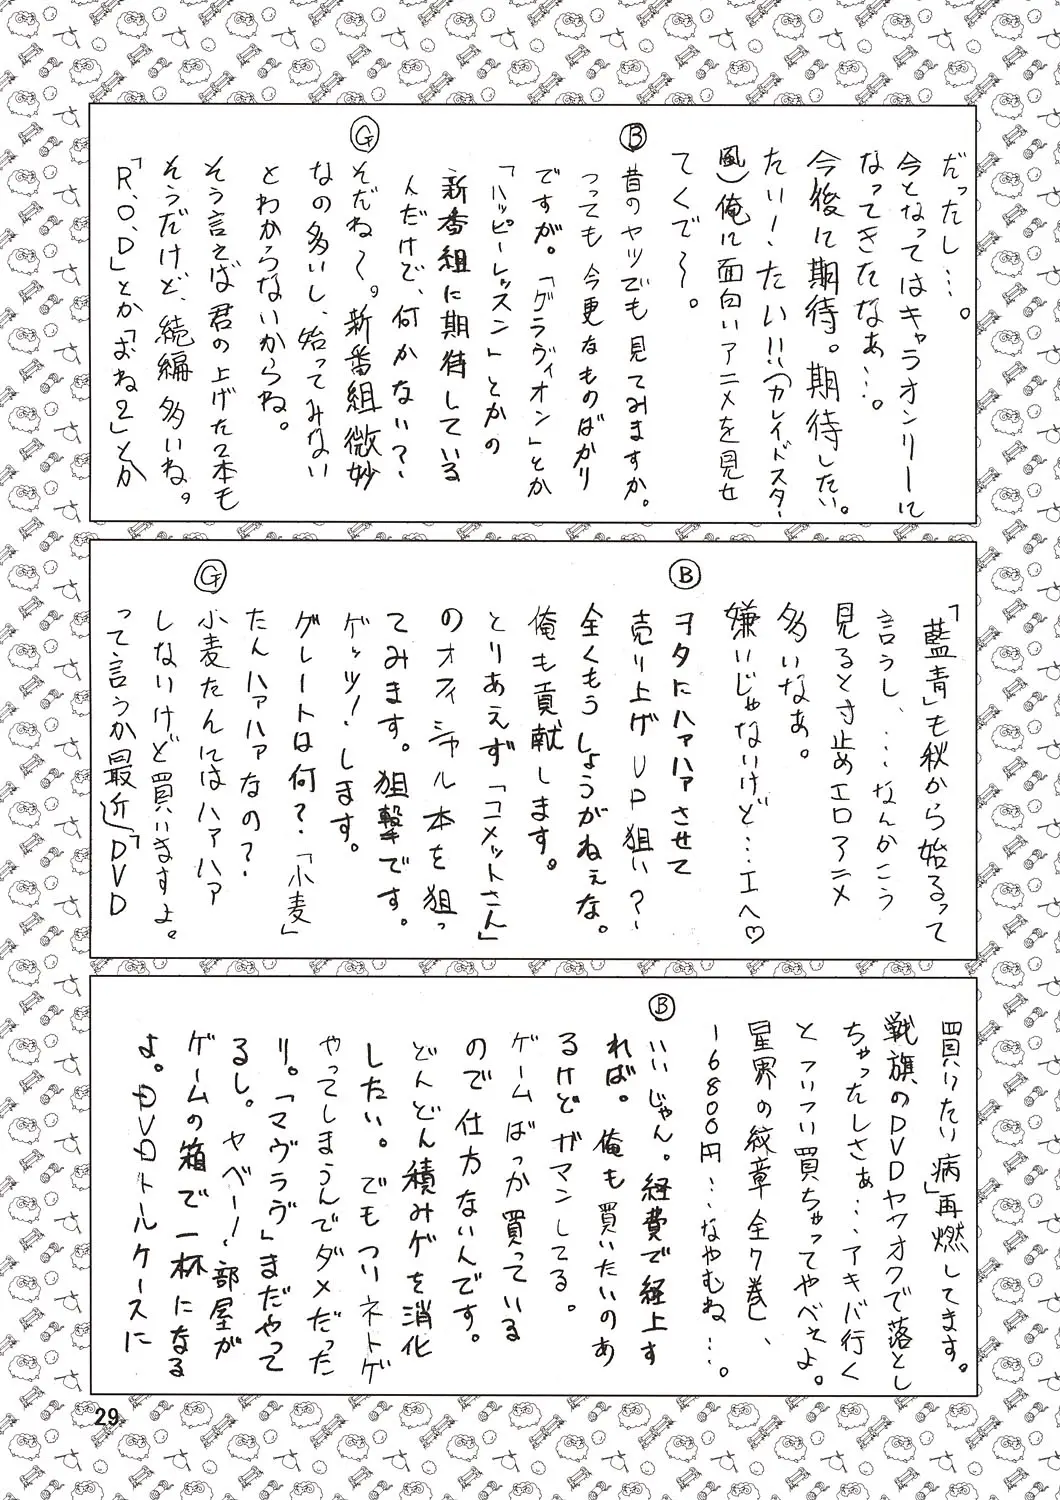 だったし…。
今となってはキャラオンリーに
なってきたなぁ…。
今後に期待。期待したい。
たい！たい!!(カレイドスター
風)俺に面白いアニメを見せ
てくで〜。
Ⓑ
昔のヤツでも見てみますか。
つっても今更なものばかり
ですが。「グラヴィオン」とか
「ハッピーレッスン」とかの
新番組に期待している
んだけで、何かない？
Ⓖ
そだね〜。新番組微妙
なの多いし、始ってみない
とわからないからね。
そう言えば君の上げた2本も
そうだけど、続編多いね。
「R.O.D」とか「おね2」とか
「藍青」も秋から始るって
言うし、…なんかこう
見ると寸止めエロアニメ
多いなぁ。
嫌いじゃないけど…エヘ♡
Ⓑ
ヲタにハァハァさせて
売り上げUP狙い？
全くもうしょうがねぇな。
俺も貢献します。
とりあえず「コメットさん」
のオフィシャル本を狙っ
てみます。狙撃です。
ゲッツ！します。
グレートは何？「小麦」
たんハァハァなの？
Ⓖ
小麦たんにはハァハァ
しないけど買いますよ。
って言うか最近「DVD
買いたい病」再燃してます。
戦旗のDVDヤフオクで落とし
ちゃったしさぁ…アキバ行く
とついつい買ちゃってやべぇよ。
星界の紋章全7巻し、
16800円…なやむね…。
Ⓑ
いいじゃん。経費で経上す
れば。俺も買いたいのあ
るけどガマンしてる。
ゲームばっか買っている
ので仕方ないんです。
どんどん積みゲを消化
したい。でもついネトゲ
やってしまうんでダメだった
り。「マヴラヴ」まだやって
るし。ヤベー！部屋が
ゲームの箱で一杯になる
よ。DVDトールケースに
29